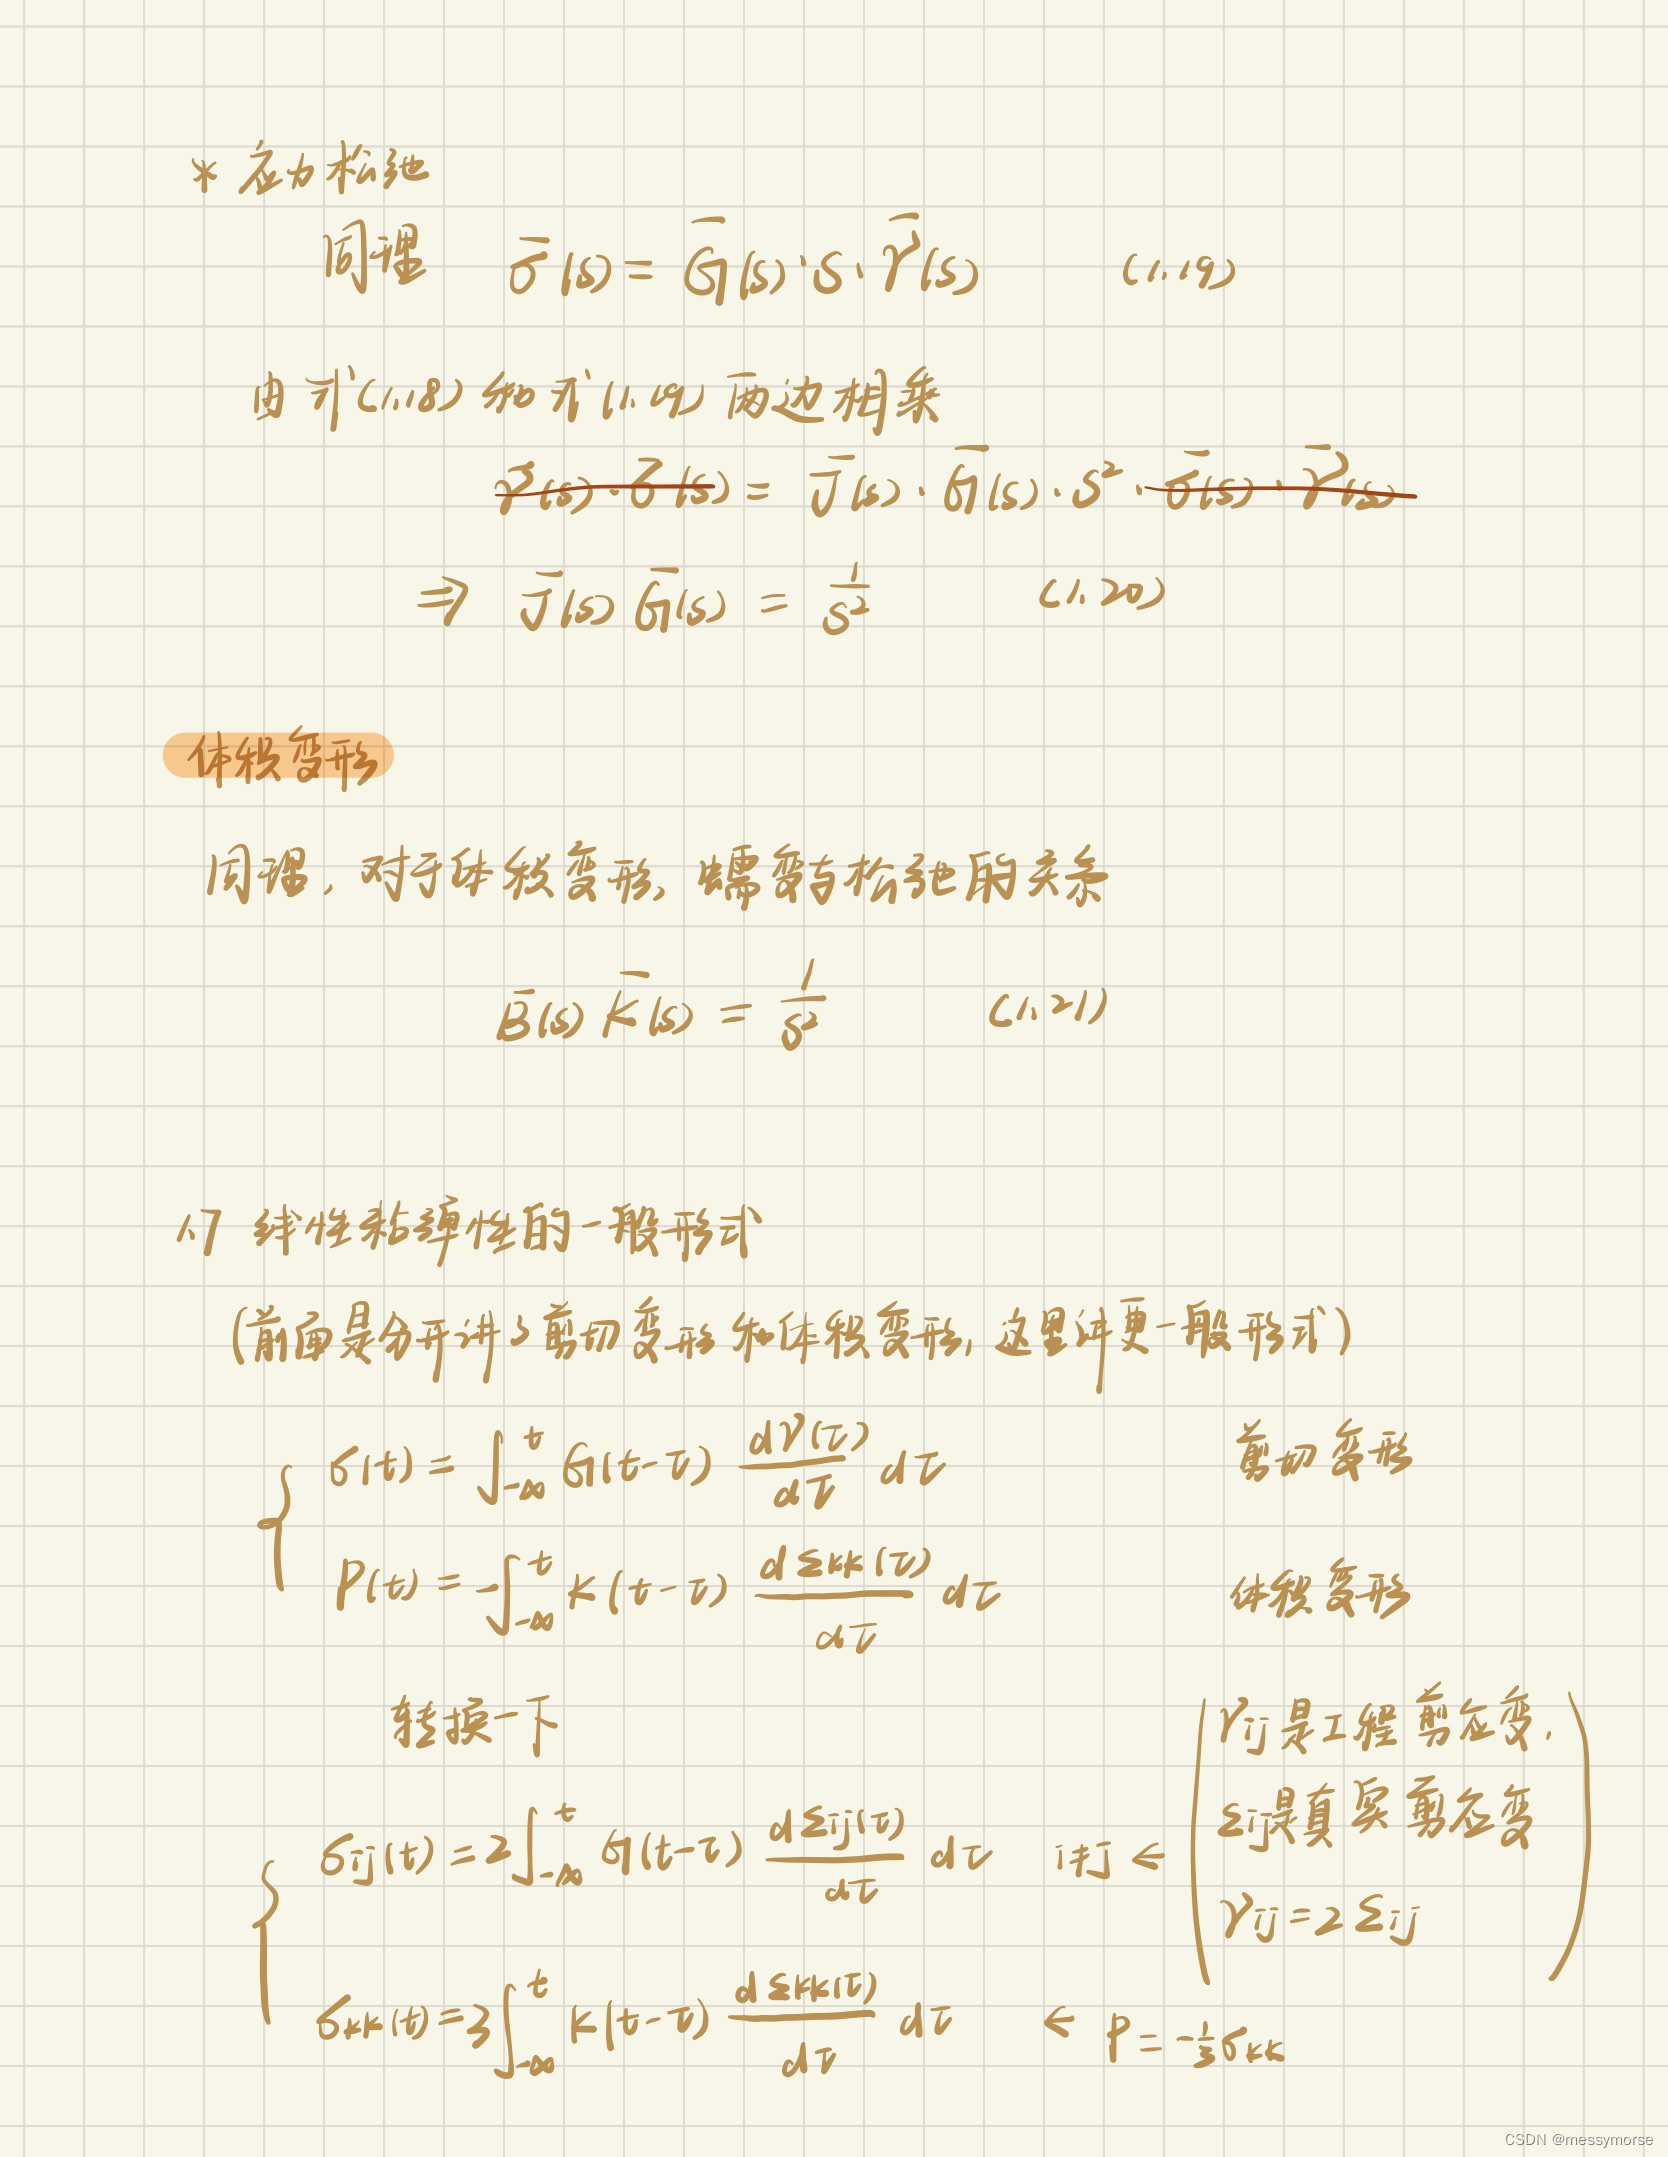 * 应力松弛
同理 σ̄(s) = Ḡ(s)·s·γ̄(s) (1.19)
由式(1.18)和式(1.19)两边相乘
γ̄(s)·σ̄(s) = J̄(s)·Ḡ(s)·s²·σ̄(s)·γ̄(s)
⇒ J̄(s) Ḡ(s) = 1/s² (1.20)
体积变形
同理,对于体积变形,蠕变与松弛的关系
B̄(s) K̄(s) = 1/s² (1.21)
1.7 线性粘弹性的一般形式
(前面是分开讲了剪切变形和体积变形,这里讲更一般形式)
σ(t) = ∫_{-∞}^{t} G(t-τ) dγ(τ)/dτ dτ 剪切变形
P(t) = -∫_{-∞}^{t} K(t-τ) dεkk(τ)/dτ dτ 体积变形
转换一下
σij(t) = 2∫_{-∞}^{t} G(t-τ) dεij(τ)/dτ dτ i≠j ←
γij是工程剪应变,
εij是真实剪应变
γij = 2εij
σkk(t) = 3∫_{-∞}^{t} K(t-τ) dεkk(τ)/dτ dτ ← P = -1/3 σkk
CSDN @messymorse